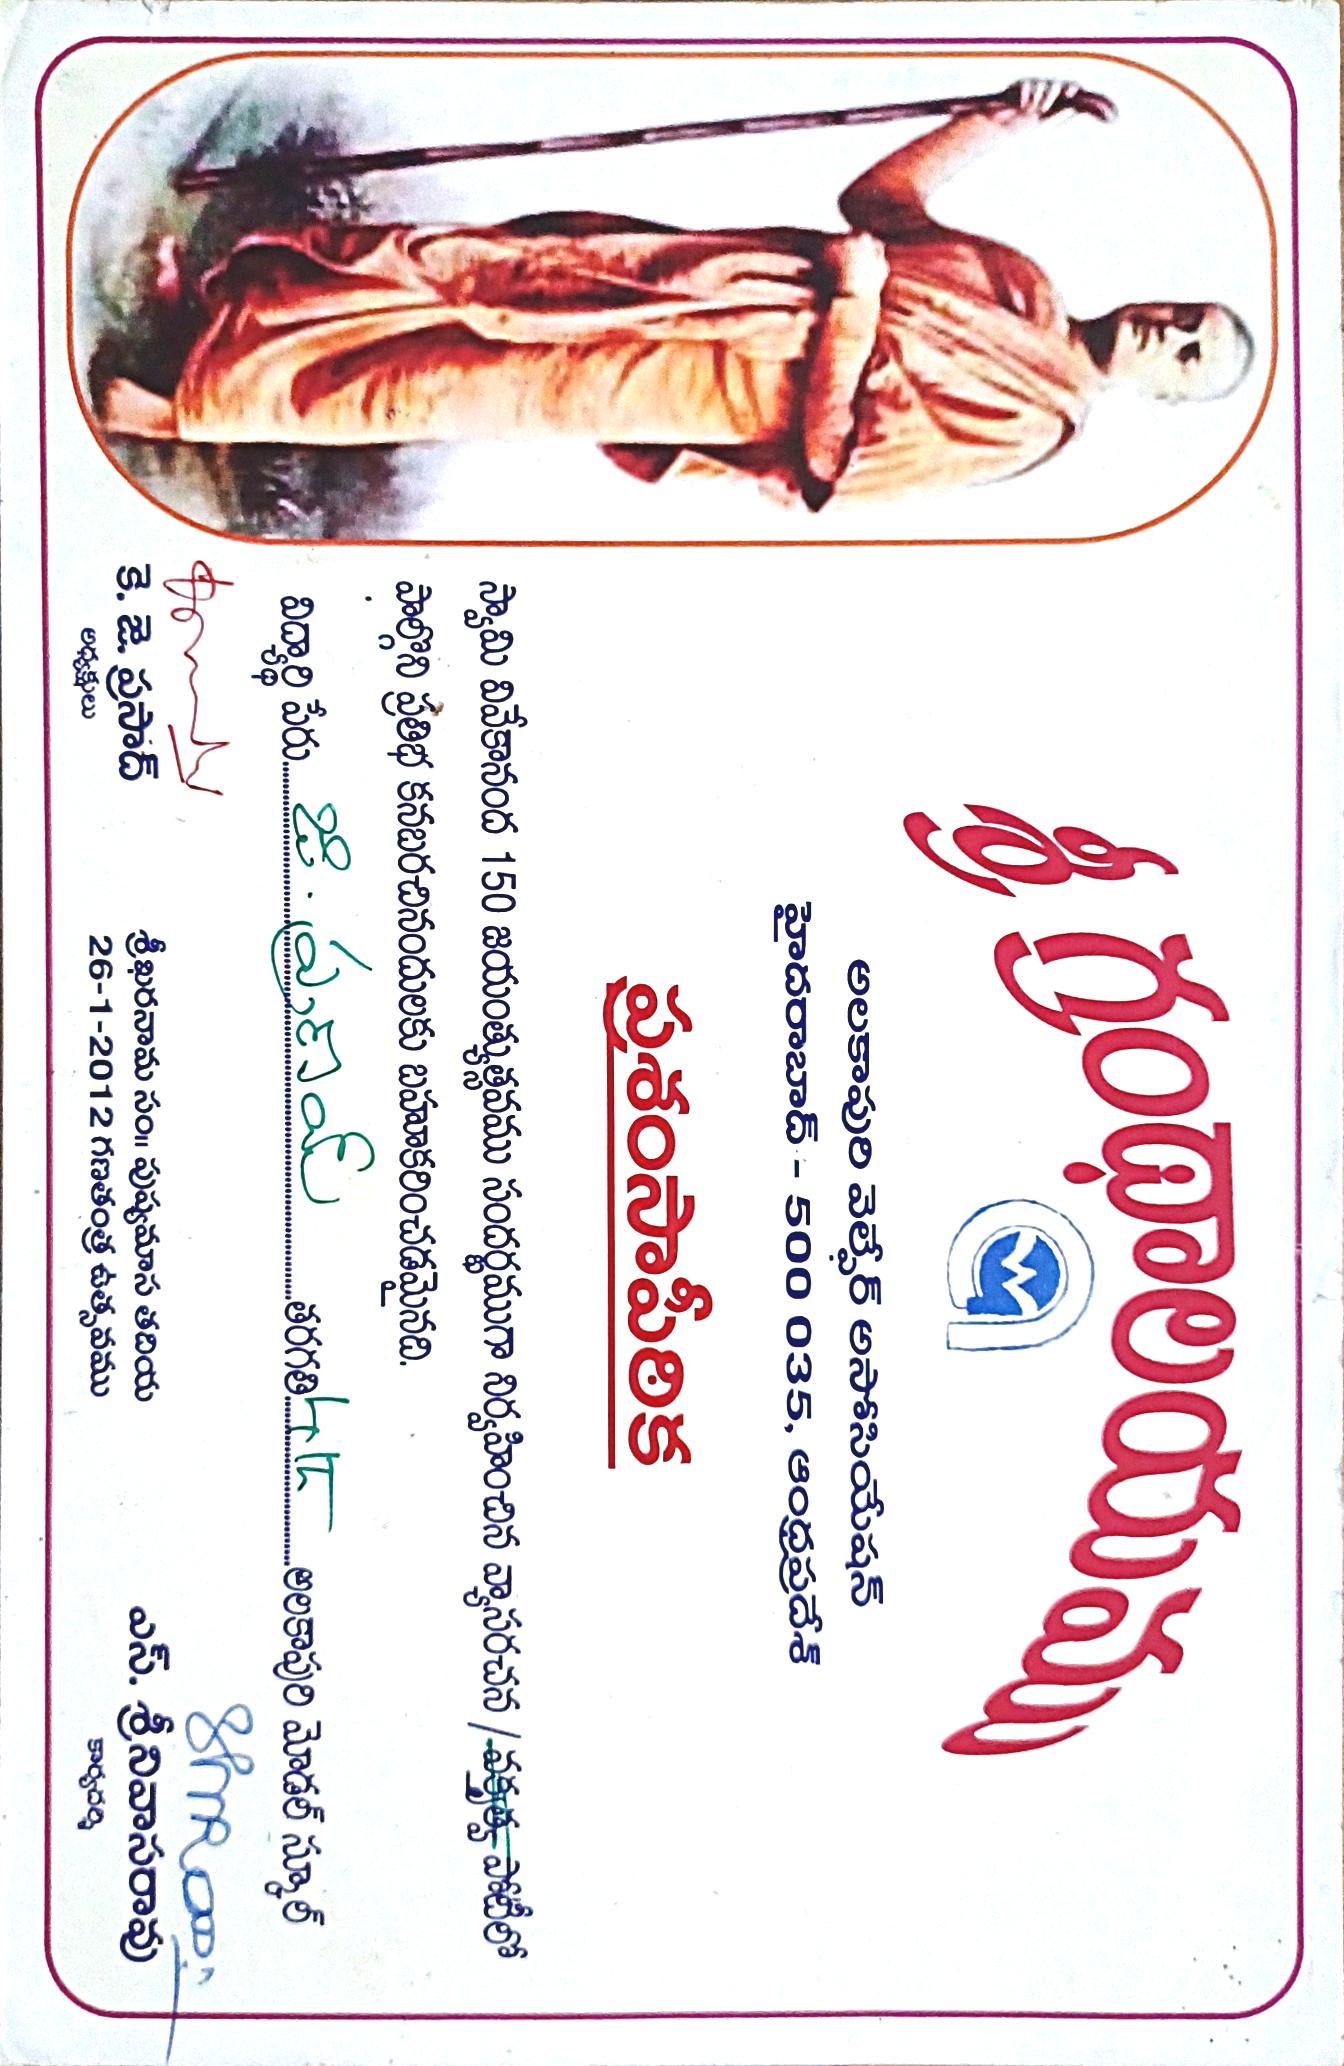 శ్రీ గ్రంథాలయము
అలకాపురి వెల్ఫేర్ అసోసియేషన్
హైదరాబాద్ - 500 035, ఆంధ్రప్రదేశ్
ప్రశంసాపత్రిక
స్వామి వివేకానంద 150 జయంత్యుత్సవము సందర్భముగా నిర్వహించిన వ్యాసరచన / వక్తృత్వ పోటీలో
పాల్గొని ప్రతిభ కనబరచినందులకు బహూకరించడమైనది.
విద్యార్థి పేరు జి. ప్రణయ్ తరగతి 4 అలకాపురి మోడల్ స్కూల్
కె. జె. ప్రసాద్
అధ్యక్షులు
శ్రీఖరనామ సం॥ పుష్యమాస తదియ
26-1-2012 గణతంత్ర ఉత్సవము
ఎస్. శ్రీనివాసరావు
కార్యదర్శి